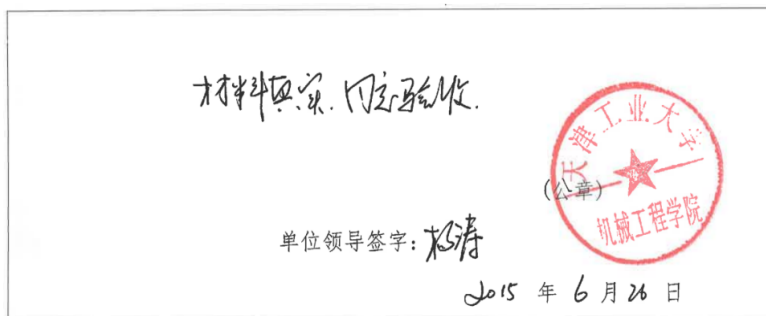 材料真实.同意验收.
天津工业大学
(公章)
机械工程学院
单位领导签字:杨涛
2015 年 6 月 26 日